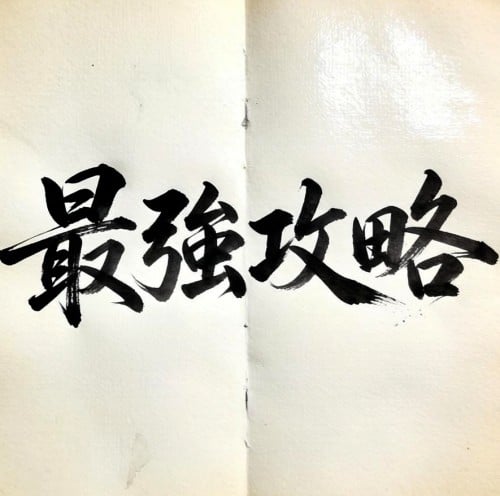 最強攻略